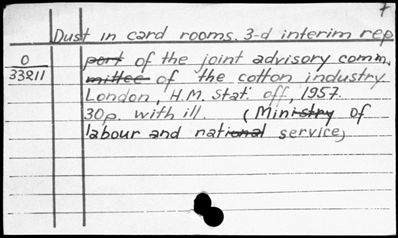 7
Dust in card rooms. 3-d interim rep
0
33211
port of the joint advisory comm.
mittee of the cotton industry
London, H.M. Stat. off., 1957.
30p. with ill. (Ministry of
labour and national service)